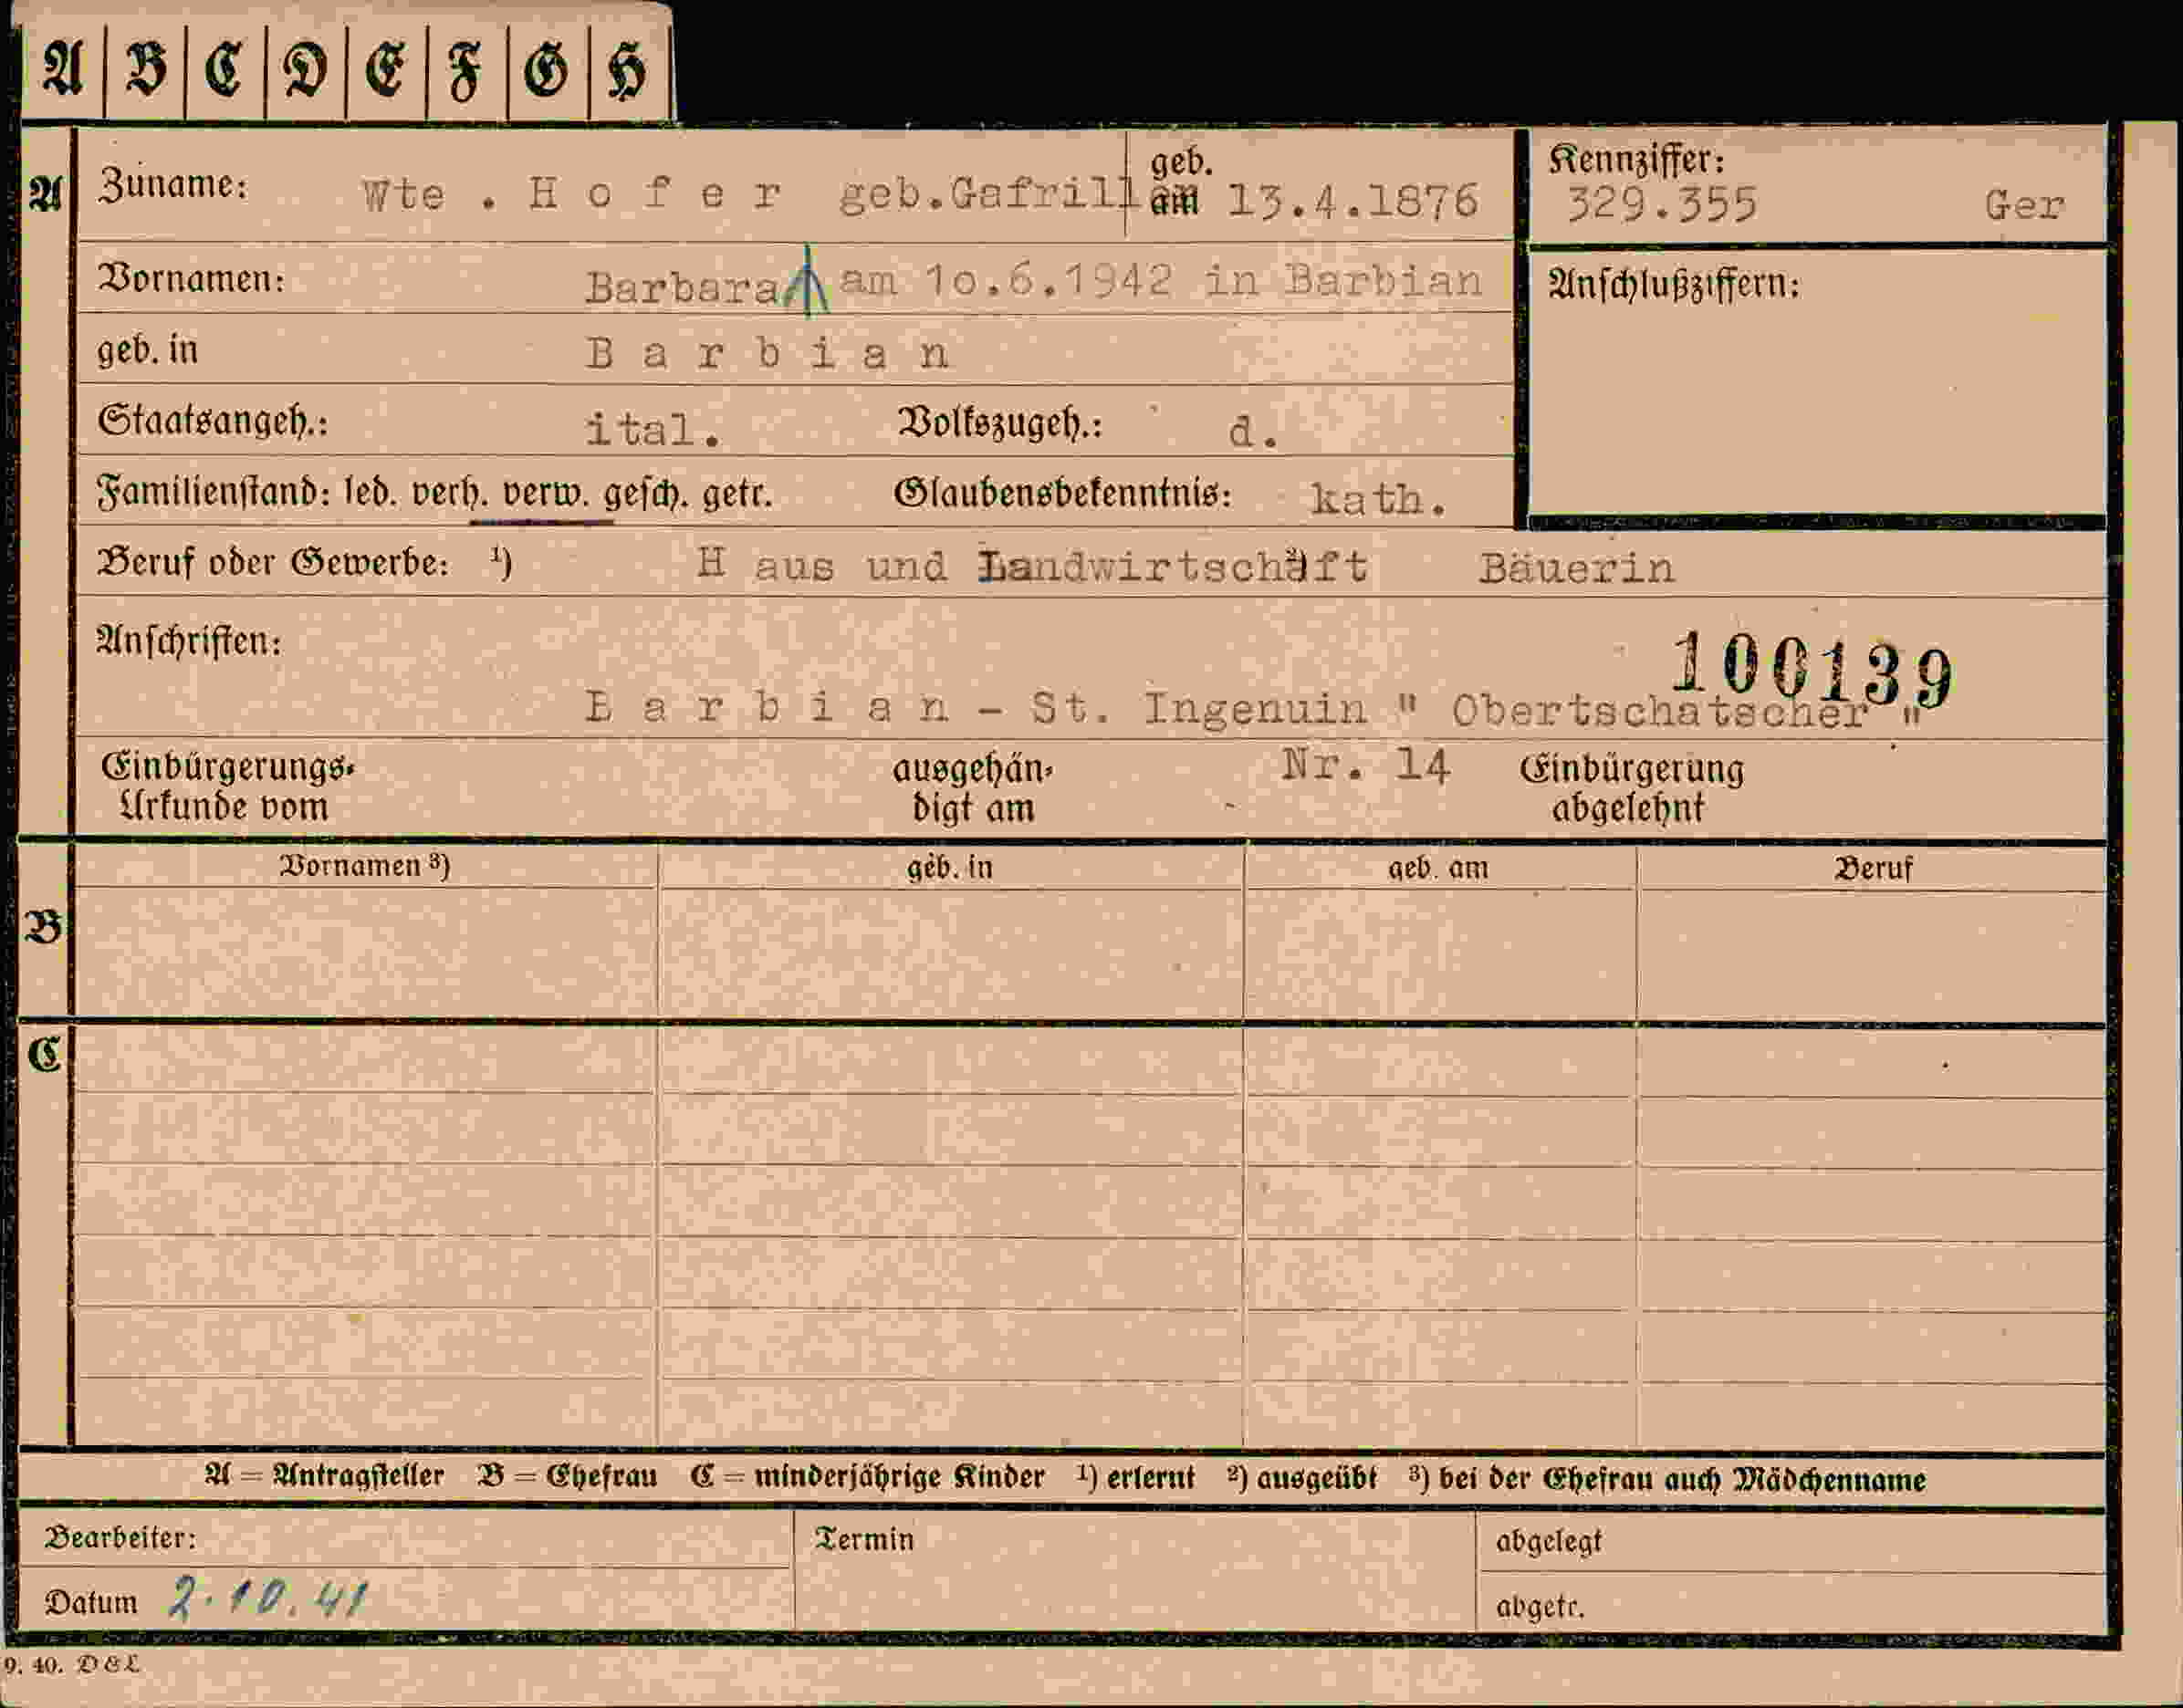 A B C D E F G H
A Zuname: Wte . H o f e r geb.Gafrill geb. am 13.4.1876 Kennziffer: 329.355 Ger
Vornamen: Barbara am 1o.6.1942 in Barbian Anschlußziffern:
geb. in B a r b i a n
Staatsangeh.: ital. Volkszugeh.: d.
Familienstand: led. verh. verw. gesch. getr. Glaubensbekenntnis: kath.
Beruf oder Gewerbe: ¹) H aus und Landwirtschaft ²) Bäuerin
Anschriften: 100139
B a r b i a n - St. Ingenuin " Obertschatscher "
Einbürgerungs- ausgehän- Nr. 14 Einbürgerung
Urkunde vom digt am abgelehnt
Vornamen ³) geb. in geb. am Beruf
B
C
A = Antragsteller B = Ehefrau C = minderjährige Kinder ¹) erlernt ²) ausgeübt ³) bei der Ehefrau auch Mädchenname
Bearbeiter: Termin abgelegt
Datum 2.10.41 abgetr.
9. 40. D & L